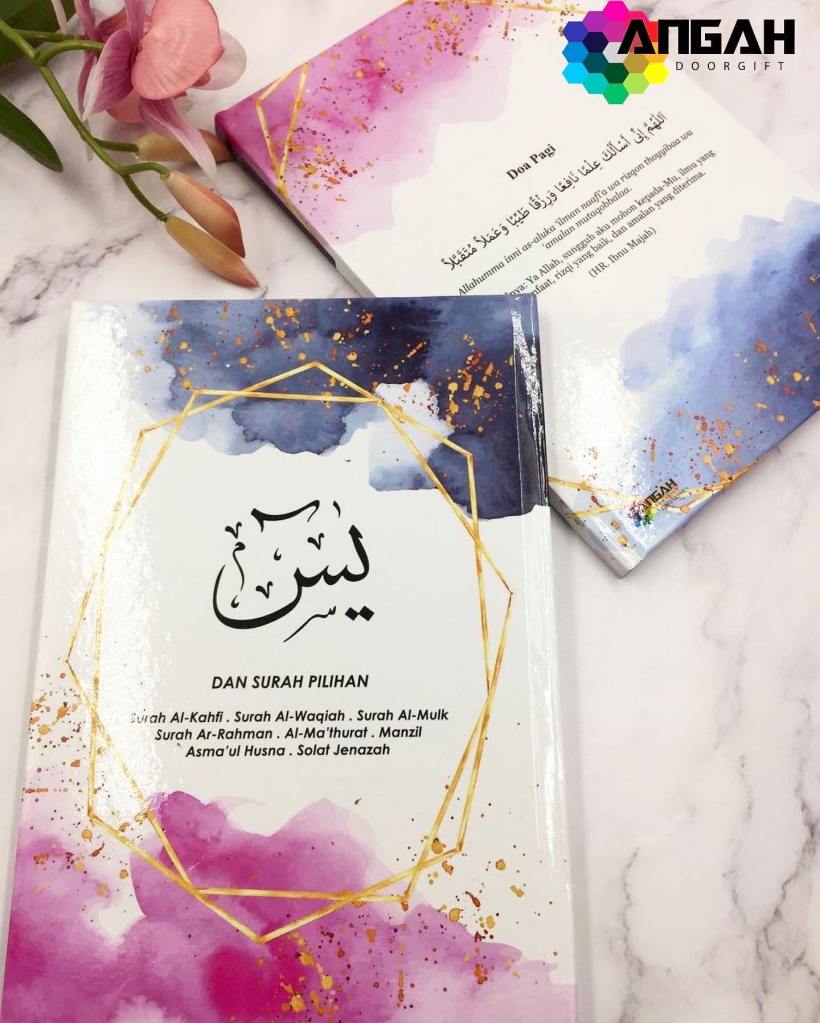 ANGAH
DOORGIFT
Doa Pagi
اَللّٰهُمَّ إِنِّى أَسْأَلُكَ عِلْمًا نَافِعًا وَرِزْقًا طَيِّبًا وَعَمَلًا مُتَقَبَّلًا
Allahumma inni as-aluka 'ilman naafi'a wa rizqan thoyyibaa wa
'amalan mutaqobbalaa.
Ya Allah, sungguh aku mohon kepada-Mu, ilmu yang
rizqi yang baik, dan amalan yang diterima.
(HR. Ibnu Majah)
ANGAH
يس
DAN SURAH PILIHAN
Surah Al-Kahfi . Surah Al-Waqiah . Surah Al-Mulk
Surah Ar-Rahman . Al-Ma'thurat . Manzil
Asma'ul Husna . Solat Jenazah